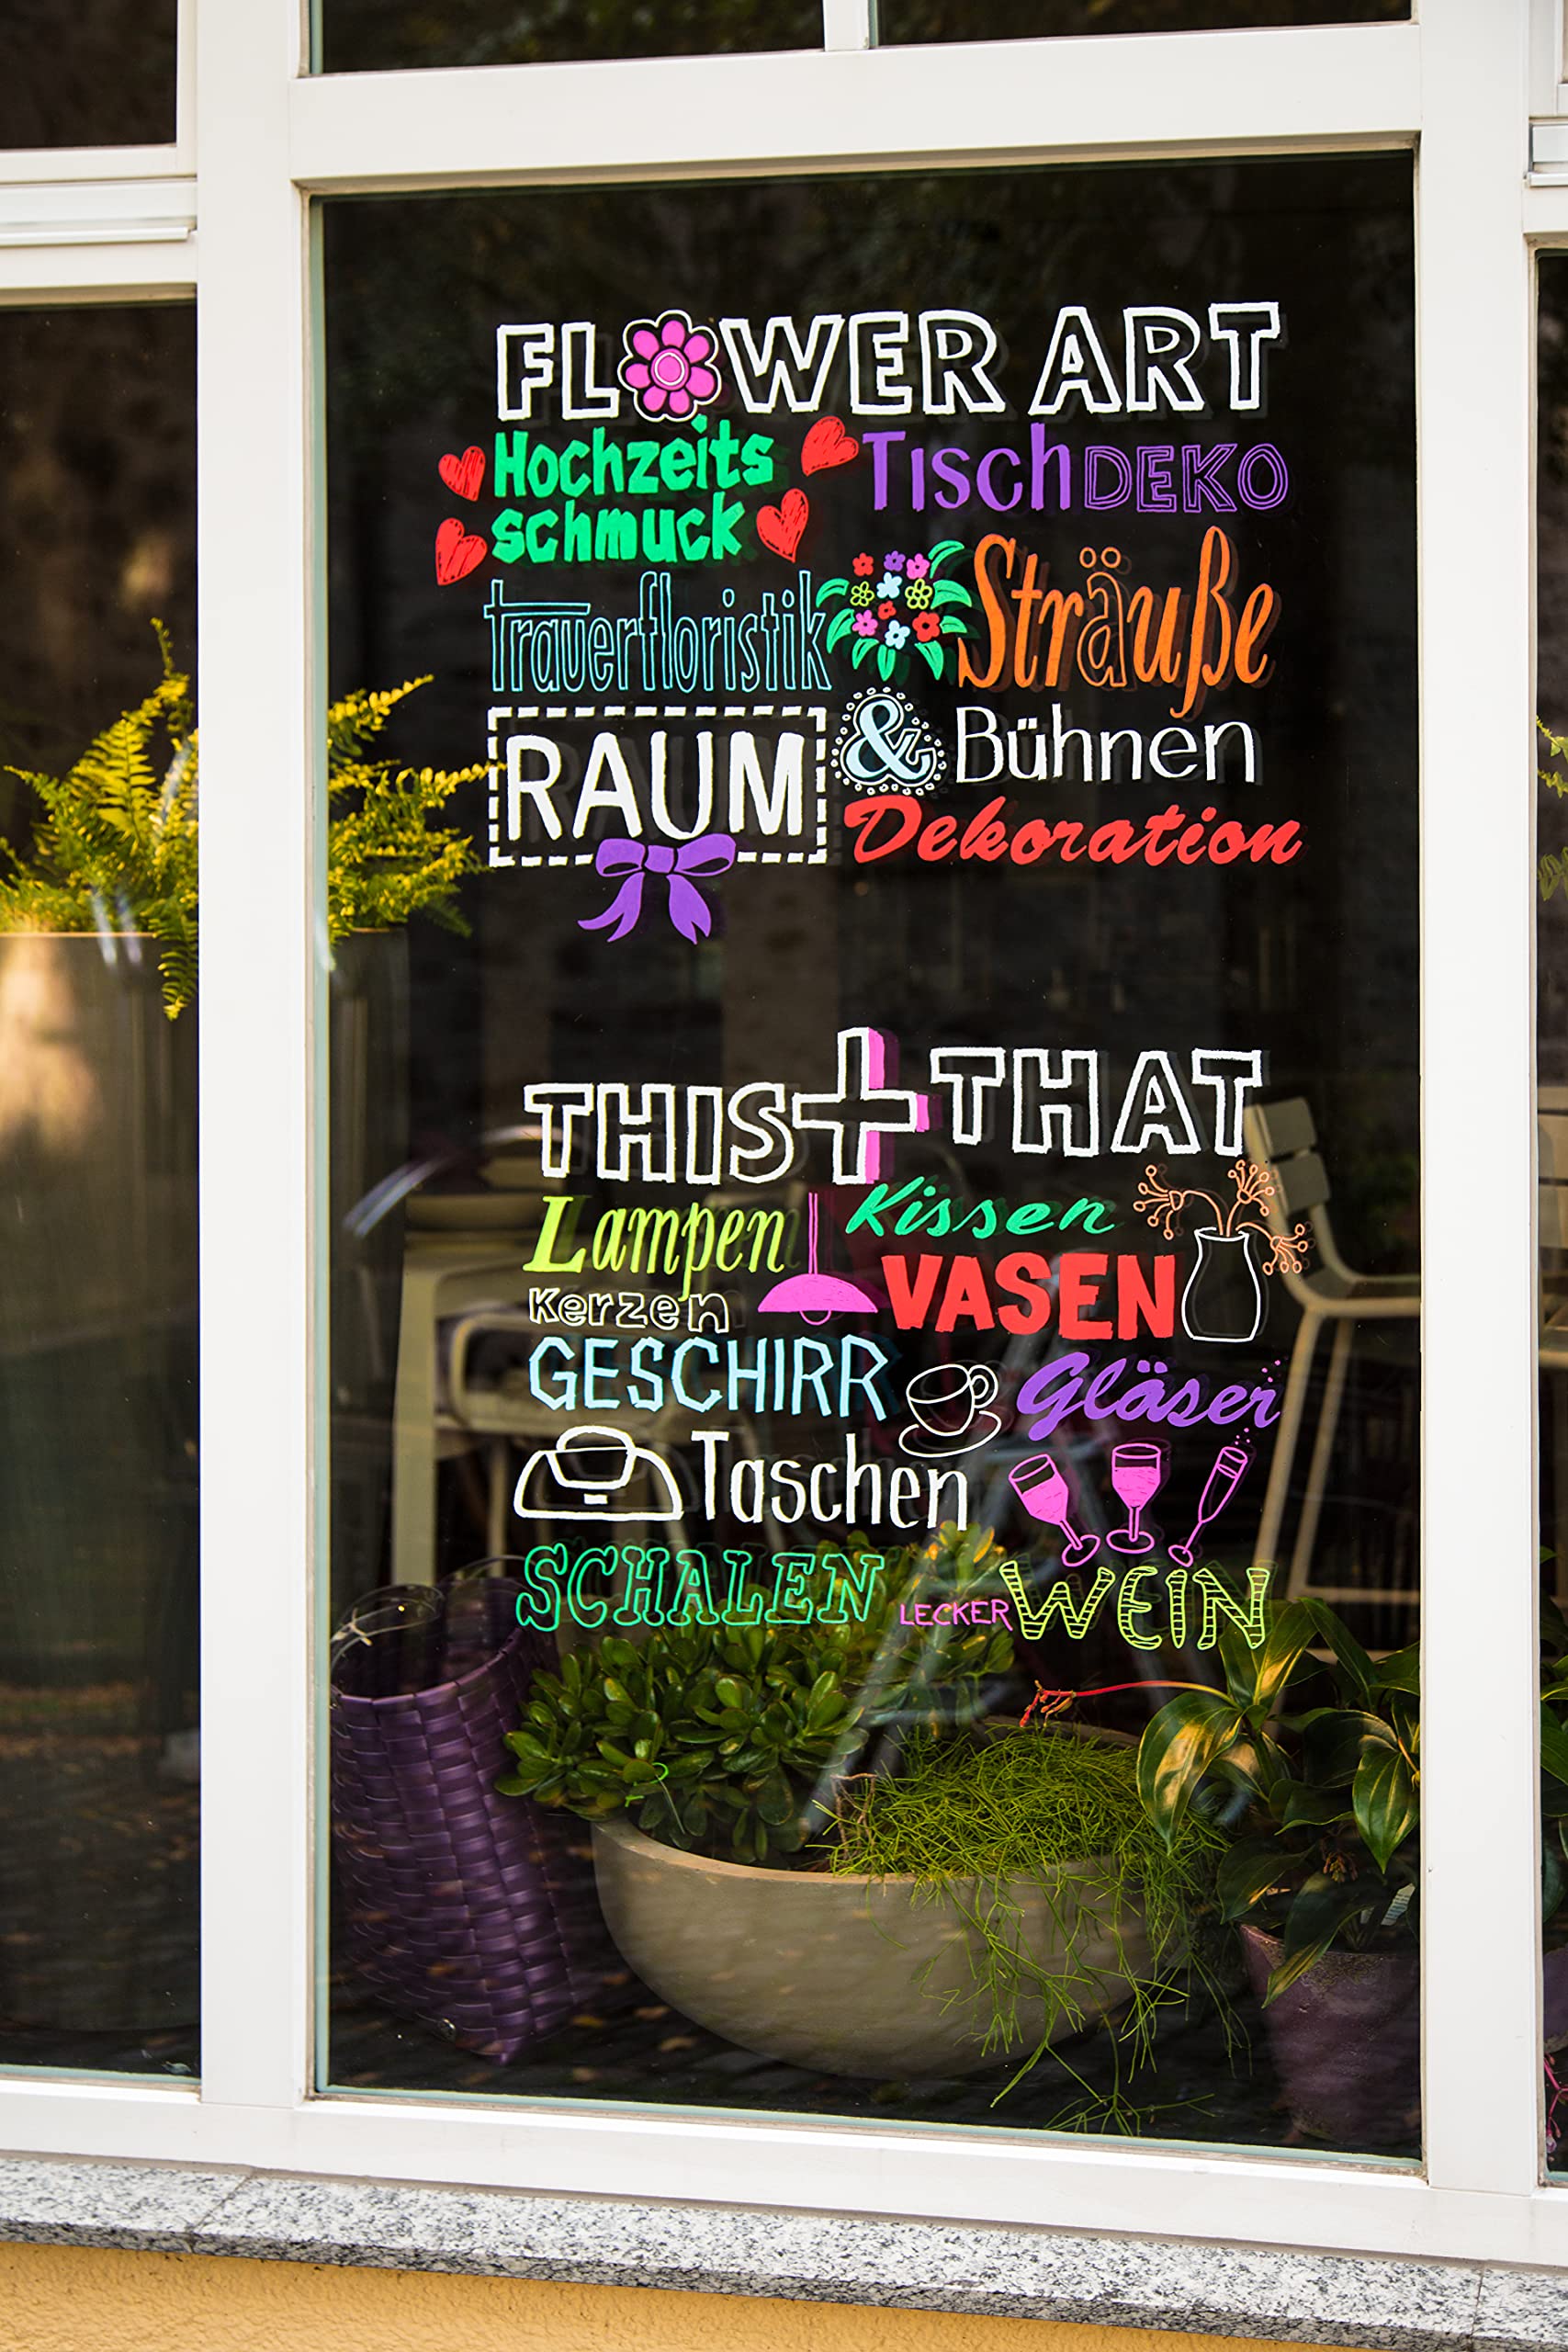 FLOWER ART
Hochzeits
schmuck
TischDEKO
trauerfloristik
Sträuße
RAUM & Bühnen
Dekoration
THIS+THAT
Lampen
Kissen
Kerzen
VASEN
GESCHIRR
Gläser
Taschen
SCHALEN
LECKER WEIN